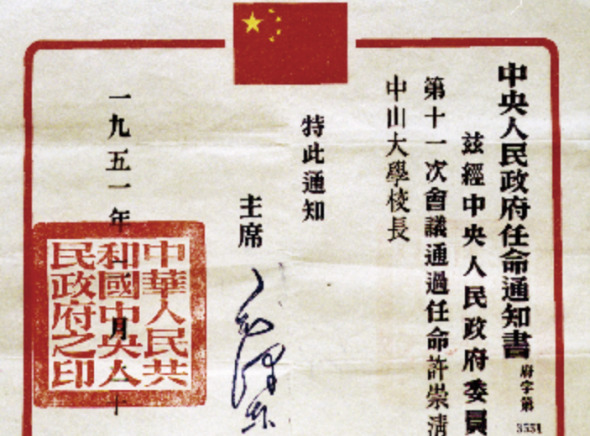 中央人民政府任命通知書
府字第
3551
茲經中央人民政府委員
第十一次會議通過任命許崇清
中山大學校長
特此通知
主席
毛澤东
一九五一年
月
中華人民共
和國中央人
民政府之印